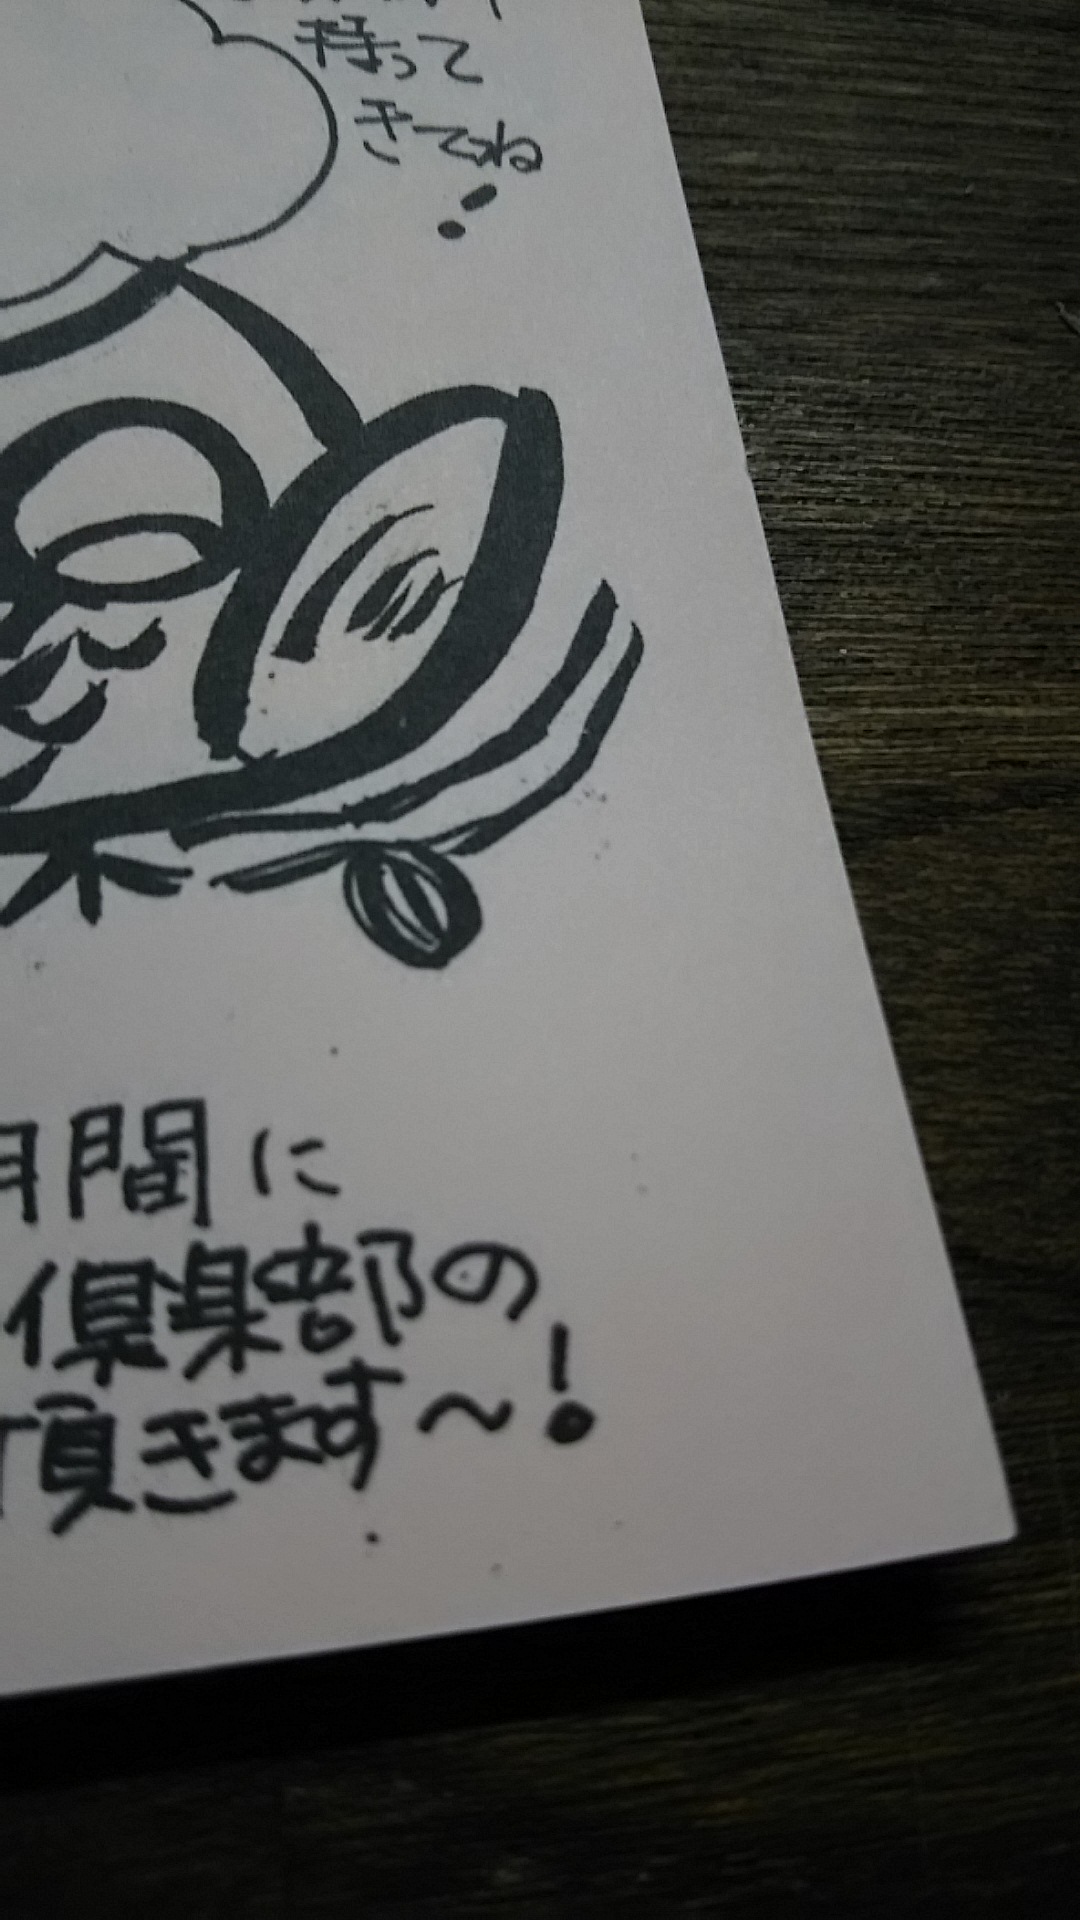 持って
きてね
!
月間に
倶楽部の
頂きます〜!